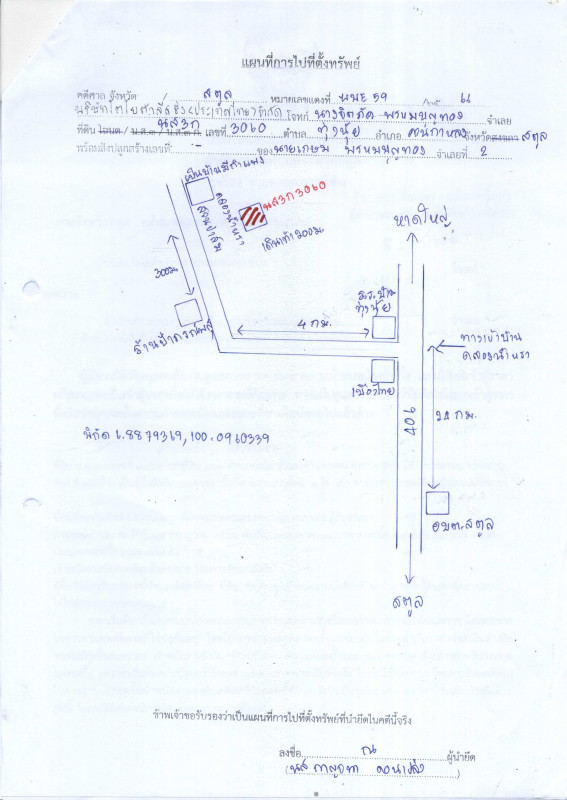 แผนที่การไปที่ตั้งทรัพย์
คดีศาล จังหวัด / สตูล หมายเลขแดงที่ ผบE 59 /
บริษัทโตโยต้าลีสซิ่ง(ประเทศไทย)จำกัด โจทก์ พรหมบุญทอง จำเลย
นส3ก
ที่ดิน โฉนด / น.ส.๓ / น.ส.๓ ก. เลขที่ 3060 ตำบล ทุ่งนุ้ย อำเภอ ควนกาหลง จังหวัด สงขลา สตูล
พร้อมสิ่งปลูกสร้างเลขที่ - ของ นายเกษม พรหมบุญทอง จำเลยที่ 2
เป็นบ้านมีกำแพง
สวนปาล์ม
คลองน้ำหรา
นส3ก3060
เดินเท้า 200ม.
หาดใหญ่
300ม.
ร.ร.บ้าน
ทุ่งนุ้ย
4 กม.
ทางเข้าบ้าน
คลองน้ำหรา
เมืองไทย
406
24 กม.
พิกัด 6.8879369,100.0960339
อบต.สตูล
สตูล
ข้าพเจ้าขอรับรองว่าเป็นแผนที่การไปที่ตั้งทรัพย์ที่นำยึดในคดีนี้จริง
ลงชื่อ ณ ผู้นำยึด